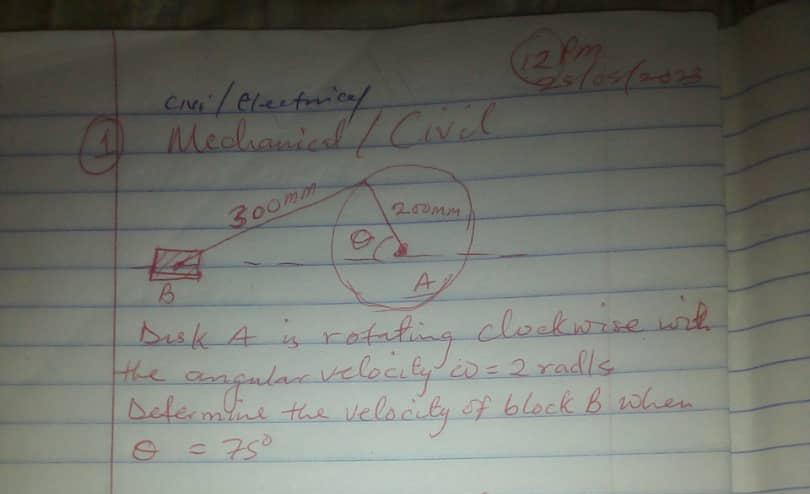 12 Pm
25/05/2023
Civi/electrical
1 Mechanical / Civil
300mm
200mm
θ
A
B
Disk A is rotating clockwise with
the angular velocity ω = 2 rad/s
Determine the velocity of block B when
θ = 75°